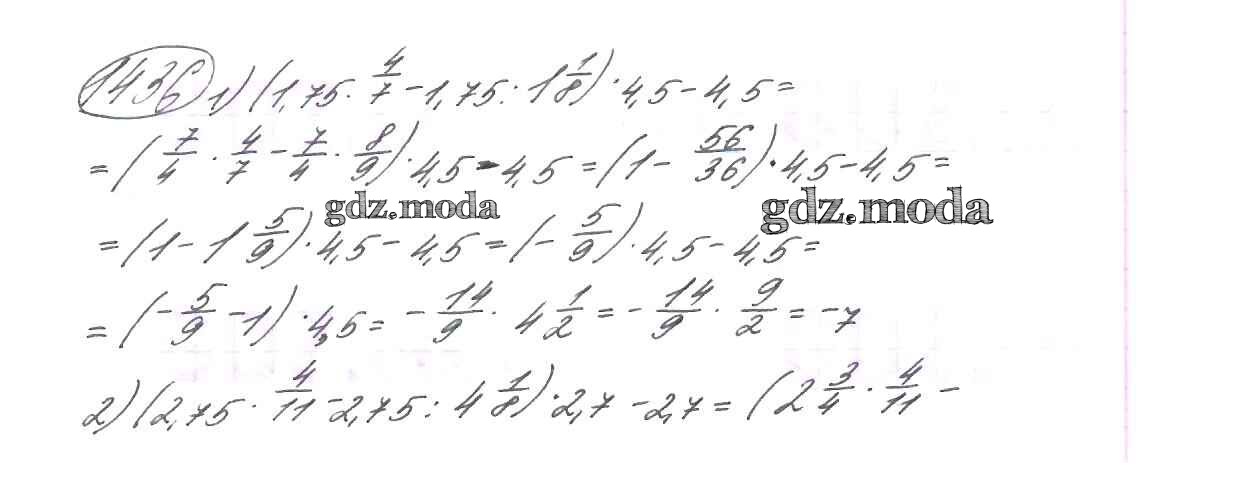 1436 1) (1,75 · 4/7 - 1,75 : 1 1/8) · 4,5 - 4,5 =
= (7/4 · 4/7 - 7/4 · 8/9) · 4,5 - 4,5 = (1 - 56/36) · 4,5 - 4,5 =
gdz.moda gdz.moda
= (1 - 1 5/9) · 4,5 - 4,5 = (- 5/9) · 4,5 - 4,5 =
= (- 5/9 - 1) · 4,5 = - 14/9 · 4 1/2 = - 14/9 · 9/2 = -7
2) (2,75 · 4/11 - 2,75 : 4 1/8) · 2,7 - 2,7 = (2 3/4 · 4/11 -